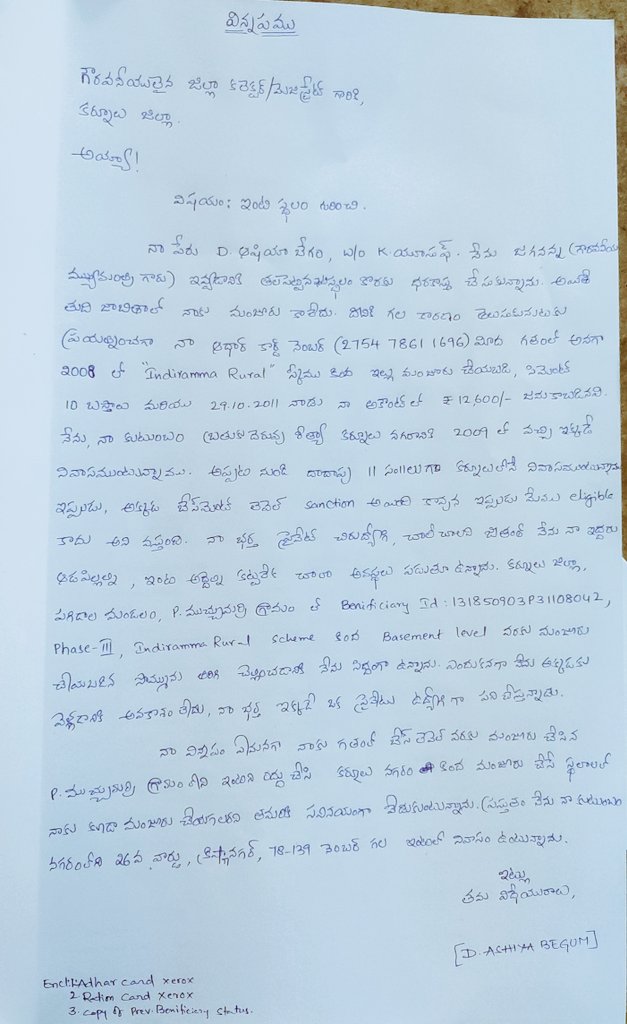 విన్నపము
గౌరవనీయులైన జిల్లా కలెక్టర్/మెజిస్ట్రేట్ గారికి,
కర్నూలు జిల్లా.
అయ్యా!
విషయం: ఇంటి స్థలం గురించి.
నా పేరు D. ఆషియా బేగం, W/o K.యూసుఫ్. నేను జగనన్న (గౌరవనీయ
ముఖ్యమంత్రి గారు) ఇవ్వడానికి తలపెట్టిన స్థలం కొరకు ధరఖాస్తు చేసుకున్నాను. అయితే
తుది జాబితాలో నాకు మంజూరు కాలేదు. దీనికి గల కారణం తెలుసుకునుటకు
ప్రయత్నించగా నా ఆధార్ కార్డ్ నెంబర్ (2754 7861 1696) మీద గతంలో అనగా
2008 లో "Indiramma Rural" స్కీము కింద ఇల్లు మంజూరు చేయబడి, సిమెంట్
10 బస్తాలు మరియు 29.10.2011 నాడు నా అకౌంట్ లో ₹12,600/- జమకాబడినవి.
నేను, నా కుటుంబం (బతుకుదెరువు) రీత్యా కర్నూలు నగరానికి 2009 లో వచ్చి ఇక్కడే
నివాసముంటున్నాము. అప్పటి నుండి దాదాపు 11 సం॥లుగా కర్నూలులోనే నివాసముంటున్నాము
ఇప్పుడు, అక్కడ బేస్‌మెంట్ లెవెల్ sanction అయింది కావున ఇప్పుడు మేము eligible
కాదు అని వస్తుంది. నా భర్త ప్రైవేట్ చిరుద్యోగి, చాలీచాలని జీతంతో నేను నా ఇద్దరు
ఆడపిల్లల్ని, ఇంటి అద్దెల్ని కట్టలేక చాలా అవస్థలు పడుతూ ఉన్నాను. కర్నూలు జిల్లా,
పగిడాల మండలం, P.ముచ్చుమర్రి గ్రామం లో Benificiary Id : 131850903P31108042,
Phase-III, Indiramma Rural scheme కింద Basement level వరకు మంజూరు
చేయబడిన సొమ్మును తిరిగి చెల్లించడానికి నేను సిద్ధంగా ఉన్నాను. ఎందుకనగా నేను అక్కడకు
వెళ్ళడానికి అవకాశం లేదు, నా భర్త ఇక్కడే ఒక ప్రైవేటు ఉద్యోగి గా పని చేస్తున్నాడు.
నా విన్నపం ఏమనగా నాకు గతంలో బేస్ లెవెల్ వరకు మంజూరు చేసిన
P.ముచ్చుమర్రి గ్రామం లోని ఇంటిని రద్దు చేసి కర్నూలు నగరం కింద మంజూరు చేసే స్థలాలలో
నాకు కూడా మంజూరు చేయగలరని తమరిని సవినయంగా వేడుకుంటున్నాను. ప్రస్తుతం నేను నా కుటుంబం
నగరంలోని 26వ వార్డు, క్రిష్ణానగర్, 78-139 నెంబర్ గల ఇంటిలో నివాసం ఉంటున్నాము.
ఇట్లు
తమ విధేయురాలు,
[D. ASHIYA BEGUM]
Encl:1.Adhar card xerox
2. Ration Card xerox
3. Copy of Prev.Benificiery Status.